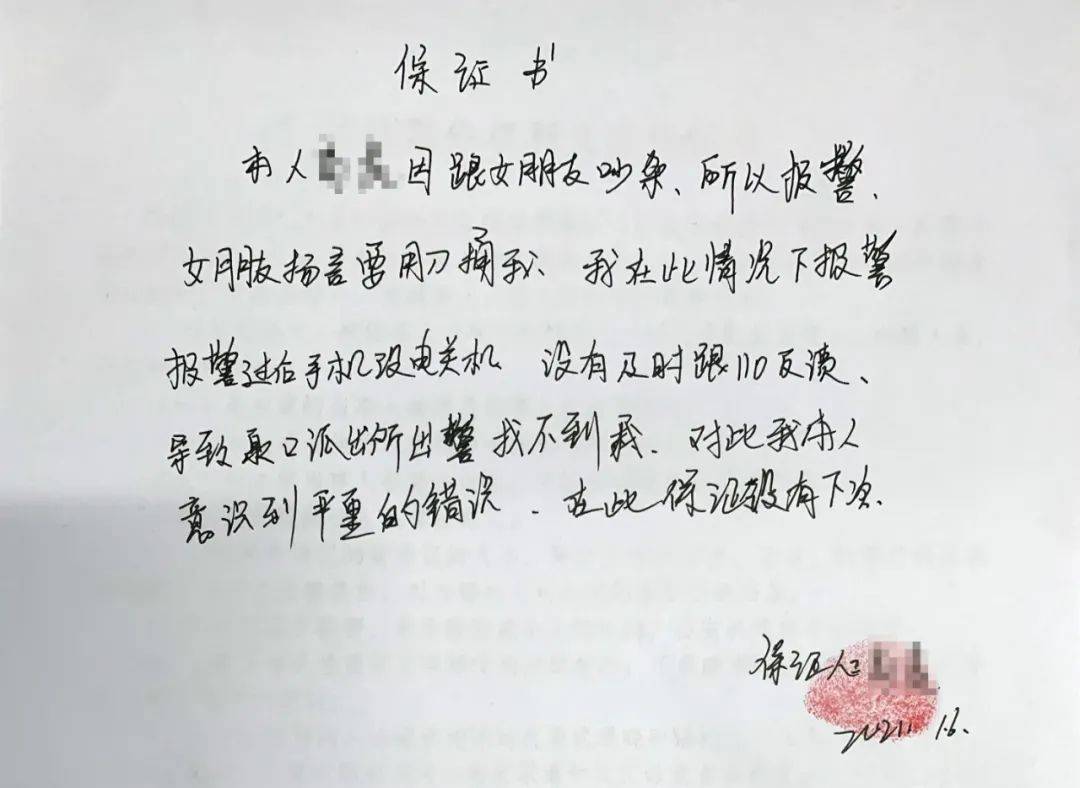 保证书
本人 因跟女朋友吵杂、所以报警、
女朋友扬言要用刀捅我、我在此情况下报警
报警过后手机没电关机 没有及时跟110反馈、
导致 口派出所出警找不到我、对此我本人
意识到严重的错误、在此保证没有下次.
保证人:
2021.1.6.